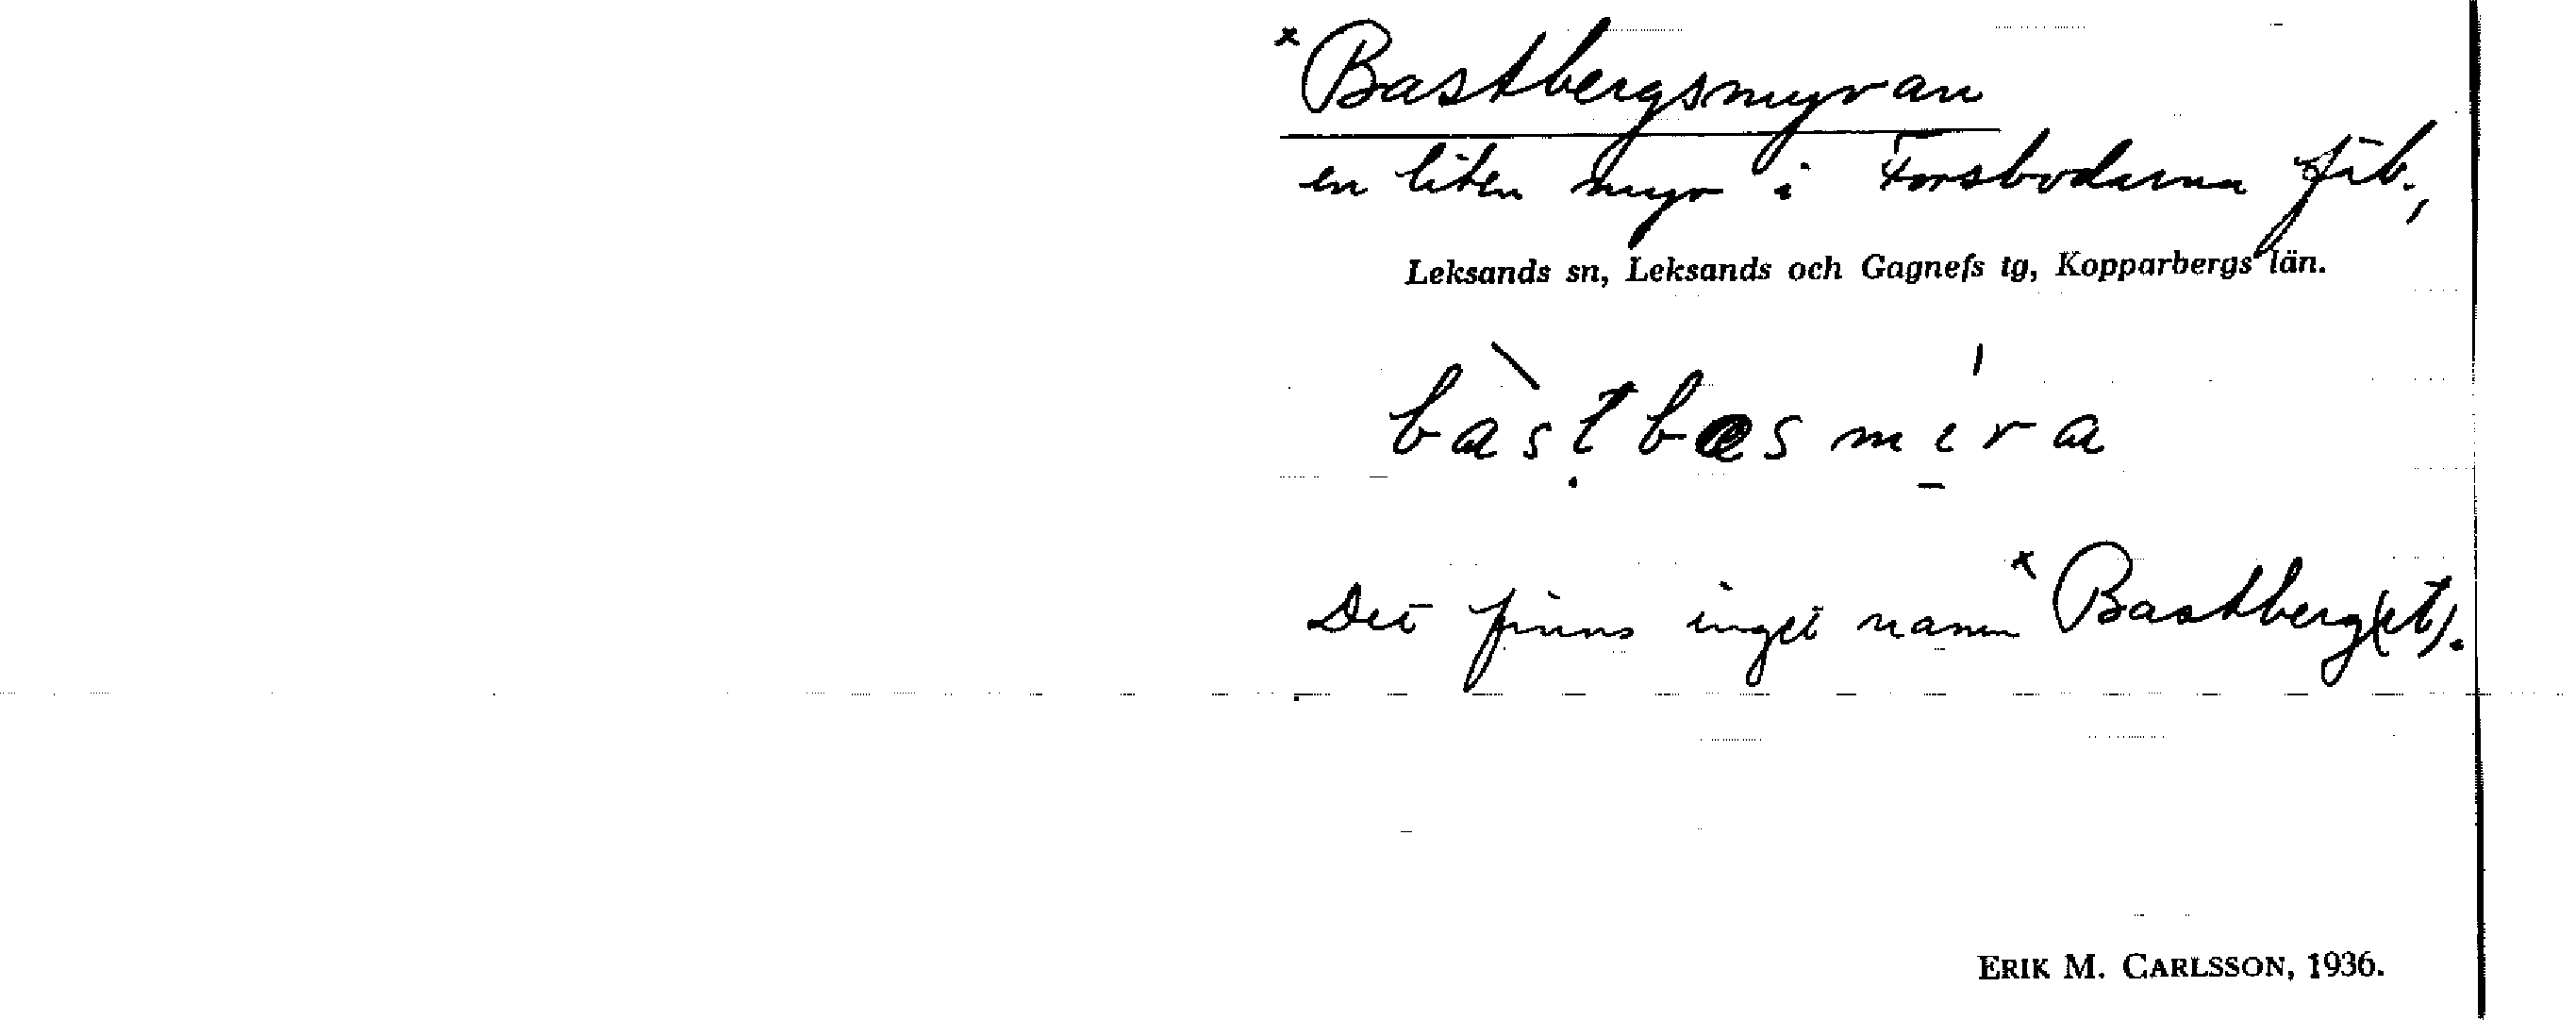 *Bastbergsmyran
en liten myr i Forsbodarna fäb.,
Leksands sn, Leksands och Gagnefs tg, Kopparbergs län.
bàstbæsmıra
Det finns inget namn *Bastberg(et).
ERIK M. CARLSSON, 1936.